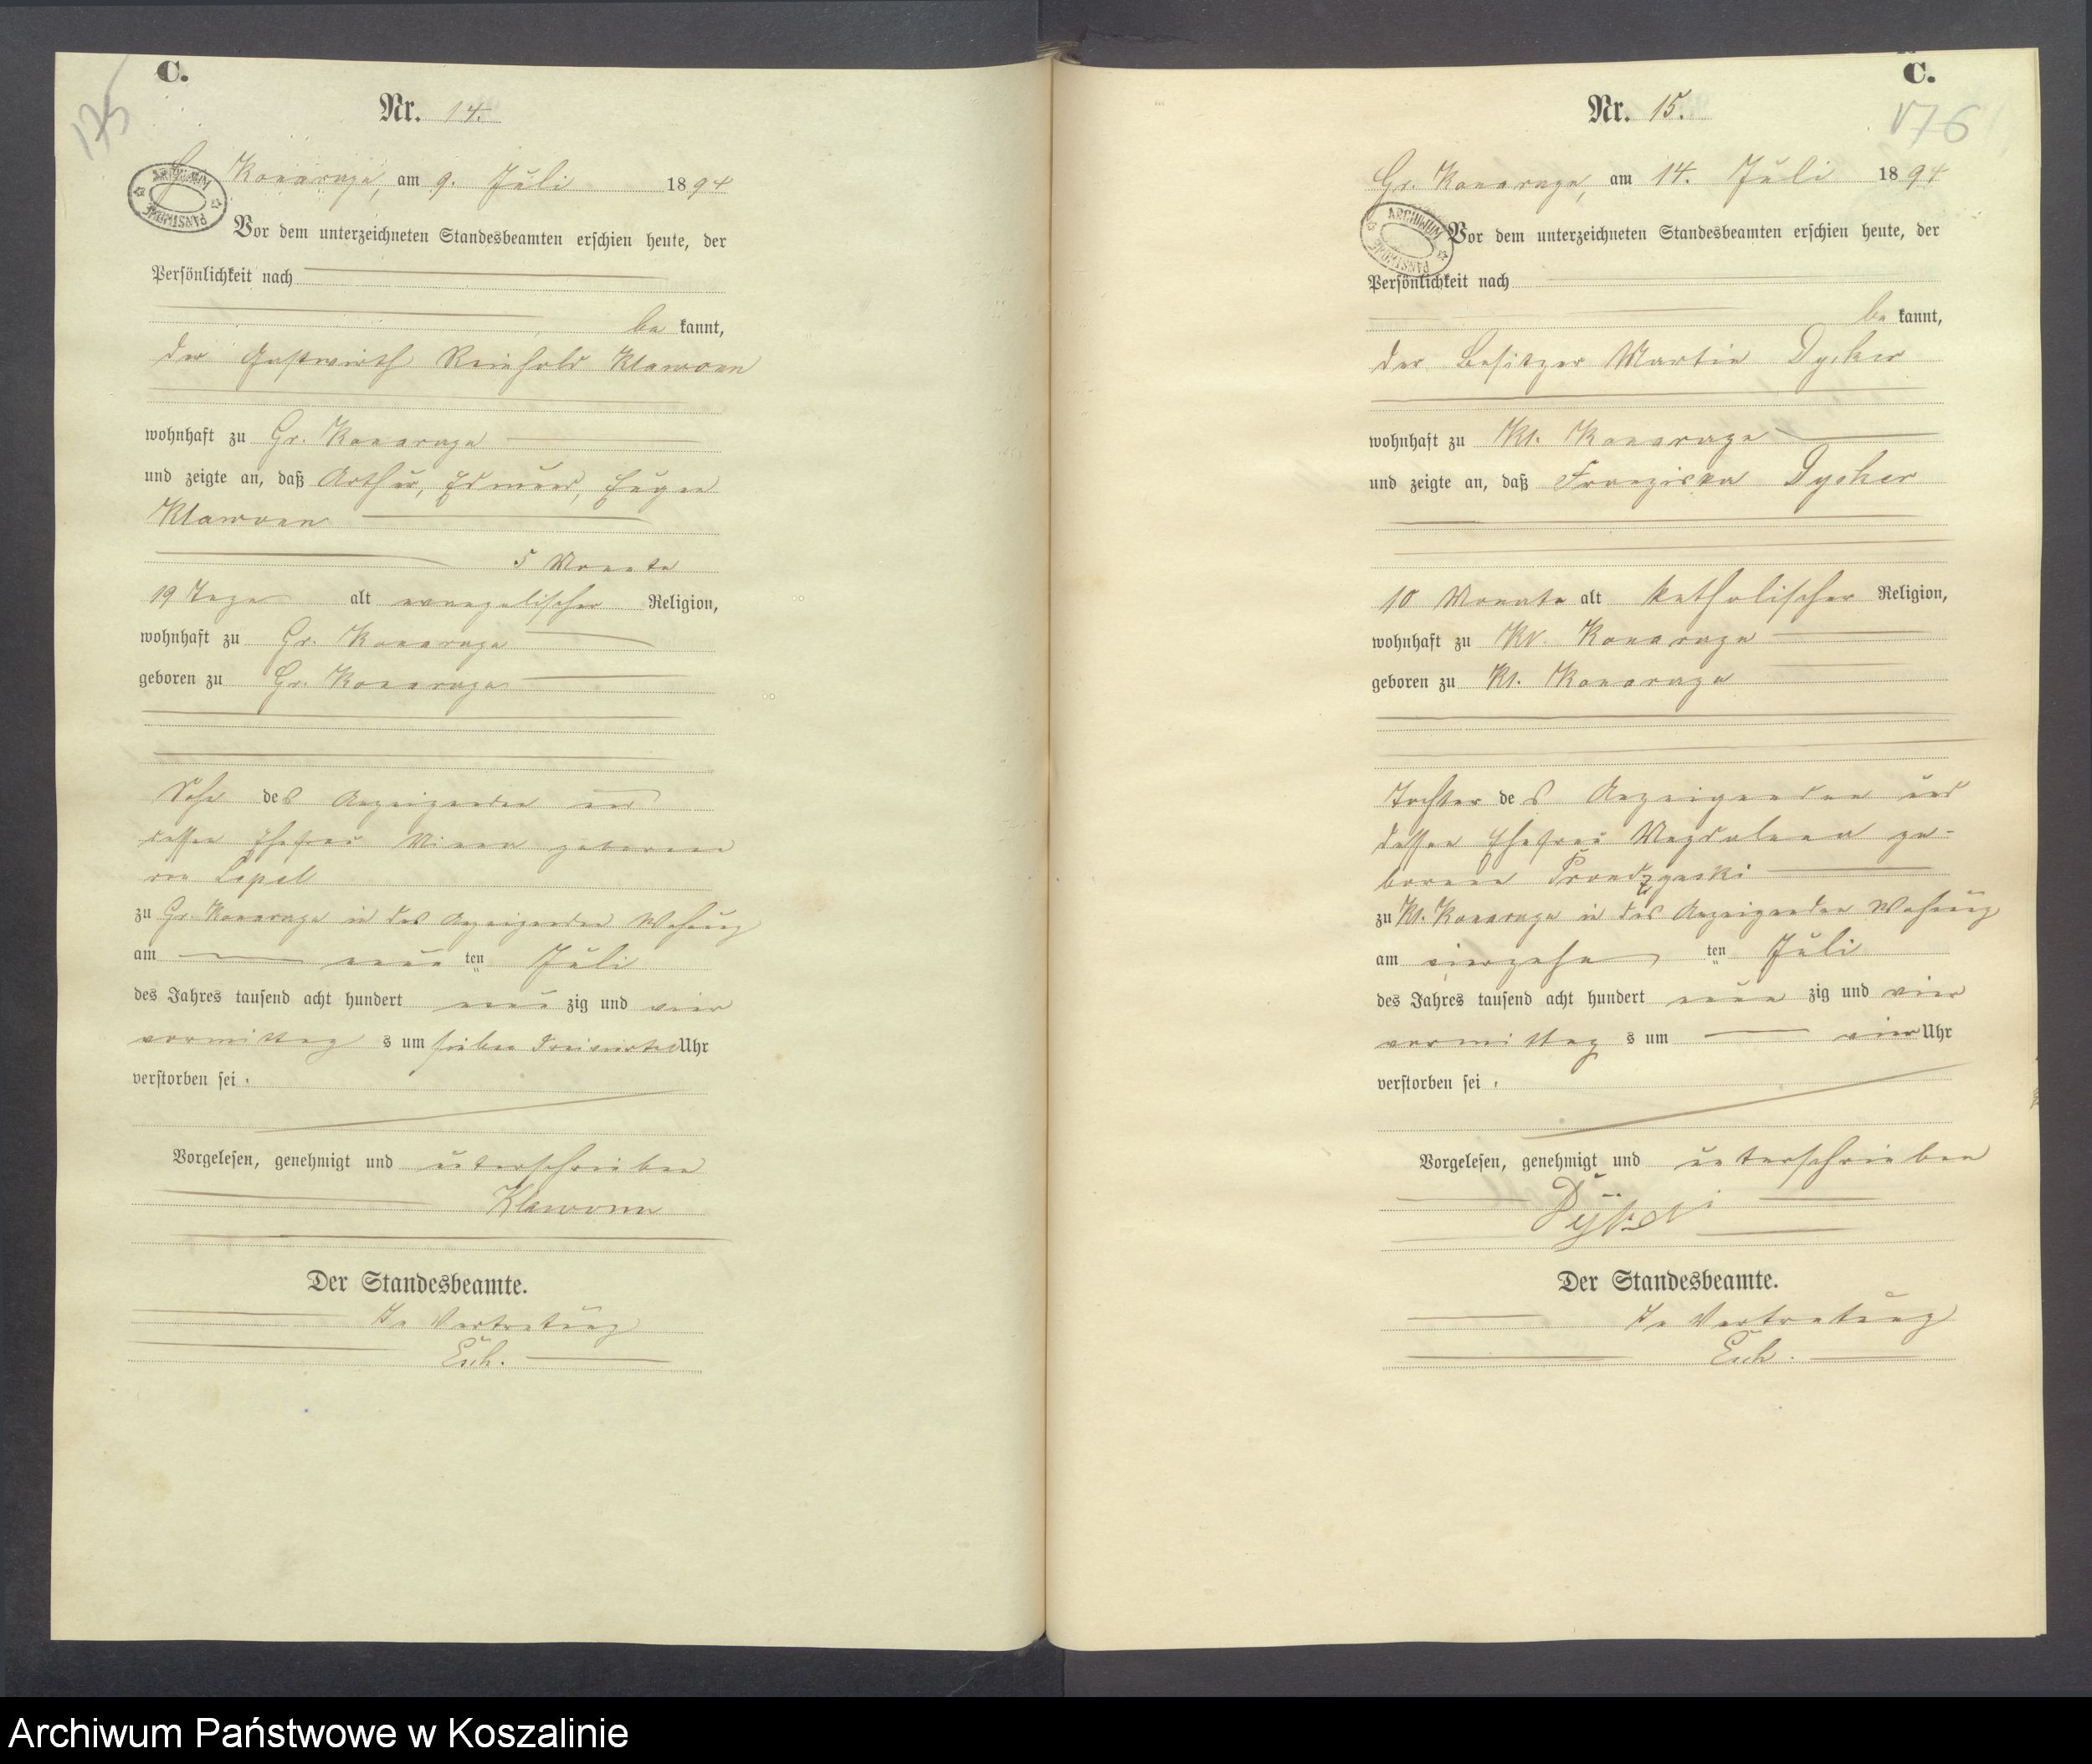 C.
175
Nr. 14.
Gr. Konarzyn, am 9. Juli 1894
ARCHIWUM PAŃSTWOWE
Vor dem unterzeichneten Standesbeamten erschien heute, der
Persönlichkeit nach
be kannt,
der Gastwirth Reinhold Klawonn
wohnhaft zu Gr. Konarzyn
und zeigte an, daß Arthur, Edmund, Eugen
Klawonn
5 Monate
19 Tage alt evangelischer Religion,
wohnhaft zu Gr. Konarzyn
geboren zu Gr. Konarzyn
Sohn des Anzeigenden und
dessen Ehefrau Minna geborene
zu Gr. Konarzyn in des Anzeigenden Wohnung
am neun ten Juli
des Jahres tausend acht hundert neun zig und vier
vormittag s um sieben dreiviertel Uhr
verstorben sei.
Vorgelesen, genehmigt und unterschrieben
Klawonn
Der Standesbeamte.
In Vertretung
C.
176
Nr. 15.
Gr. Konarzyn, am 14. Juli 1894
ARCHIWUM PAŃSTWOWE
Vor dem unterzeichneten Standesbeamten erschien heute, der
Persönlichkeit nach
be kannt,
der Besitzer Martin Dysker
wohnhaft zu Kl. Konarzyn
und zeigte an, daß Franziska Dysker
10 Monate alt katholischer Religion,
wohnhaft zu Kl. Konarzyn
geboren zu Kl. Konarzyn
Tochter des Anzeigenden und
dessen Ehefrau Magdalena ge-
borene
zu Kl. Konarzyn in des Anzeigenden Wohnung
am vierzehn ten Juli
des Jahres tausend acht hundert neun zig und vier
vormittag s um vier Uhr
verstorben sei.
Vorgelesen, genehmigt und unterschrieben
Der Standesbeamte.
In Vertretung
Archiwum Państwowe w Koszalinie